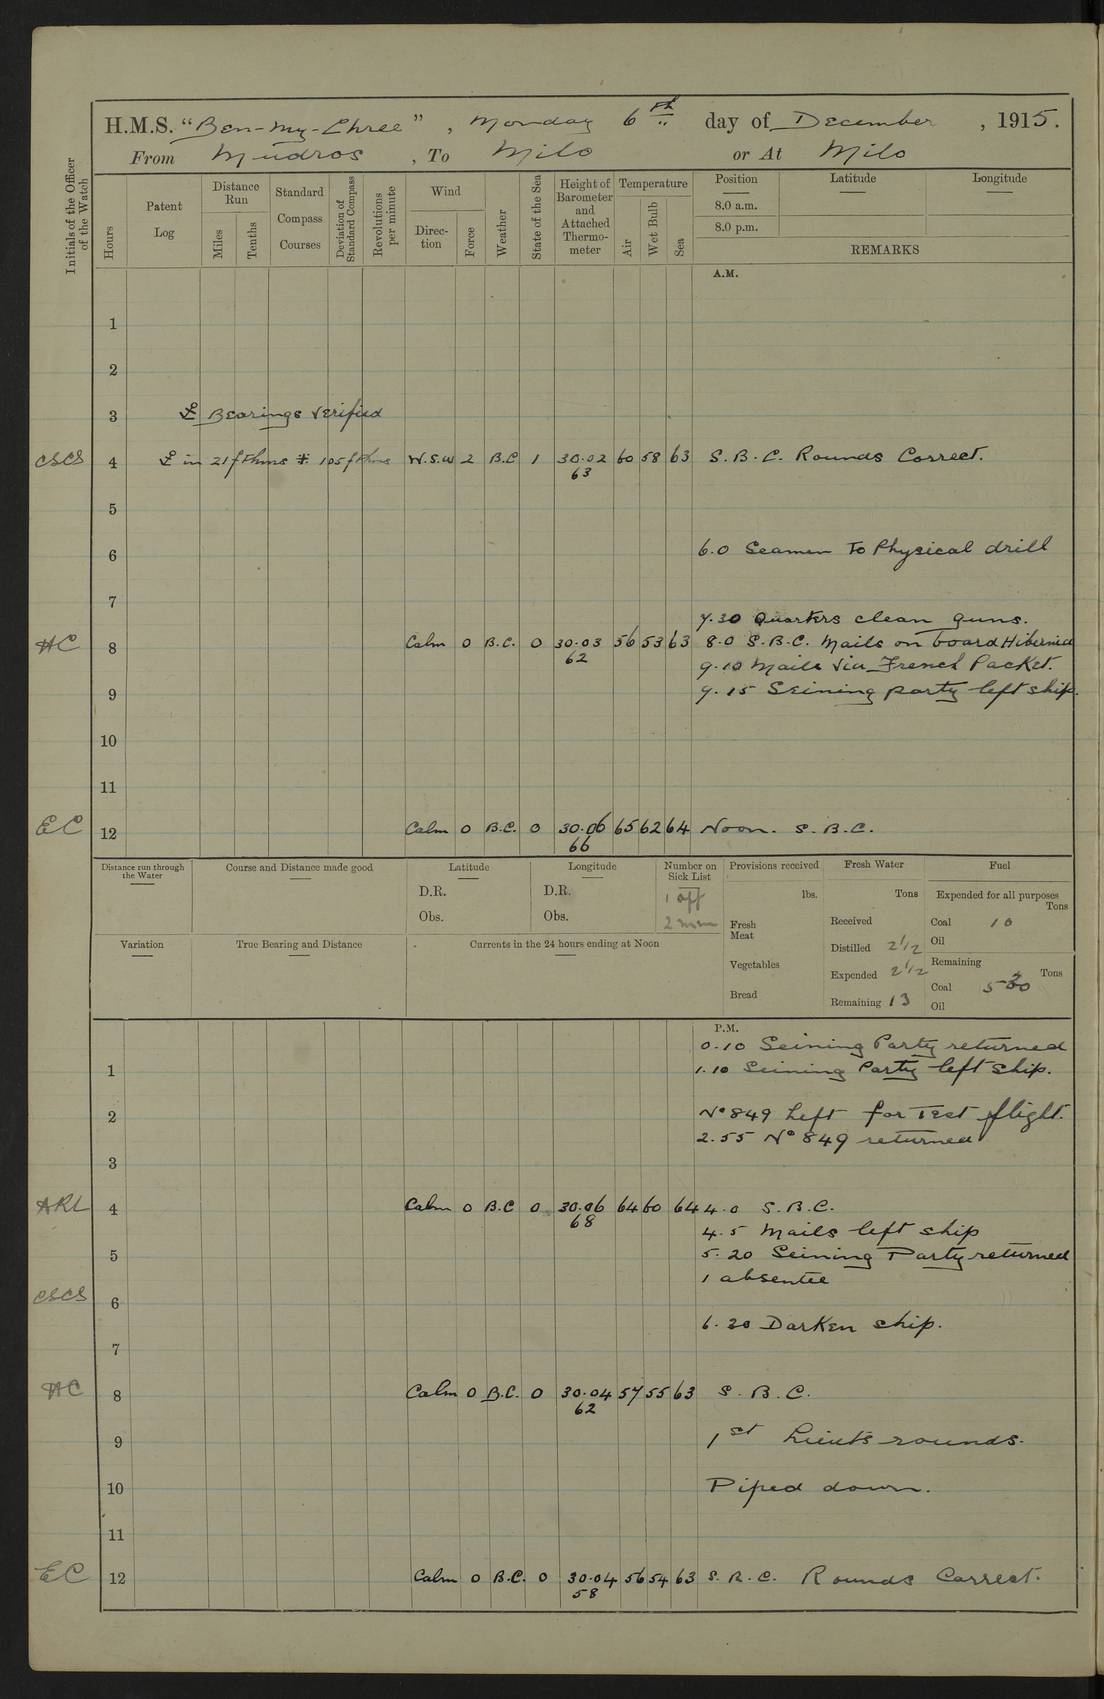 H.M.S. "Ben-my-Chree", Monday 6th day of December, 1915.
From Mudros, To Milo or At Milo
Initials of the Officer of the Watch
Hours
Patent Log
Distance Run
Miles
Tenths
Standard Compass Courses
Deviation of Standard Compass
Revolutions per minute
Wind
Direction
Force
Weather
State of the Sea
Height of Barometer and Attached Thermometer
Temperature
Air
Wet Bulb
Sea
Position Latitude Longitude
8.0 a.m.
8.0 p.m.
REMARKS
A.M.
1
2
3 Bearings verified
CSCS 4 in 21 fthms 105 fthms W.S.W 2 B.C 1 30.02 60 58 63 S.B.C. Rounds Correct.
63
5
6 6.0 Seamen To Physical drill
7
7.30 Quarters clean guns.
HC 8 Calm 0 B.C. 0 30.03 56 53 63 8.0 S.B.C. Mails on board Hibernia
62
9.10 Mails via French Packet.
9 9.15 Seining party left ship.
10
11
EC 12 Calm 0 B.C. 0 30.06 65 62 64 Noon. S.B.C.
66
Distance run through the Water
Course and Distance made good
Latitude
D.R.
Obs.
Longitude
D.R.
Obs.
Number on Sick List
1 off
2 men
Provisions received
lbs.
Fresh Meat
Vegetables
Bread
Fresh Water
Tons
Received
Distilled 2 1/2
Expended 2 1/2
Remaining 13
Fuel
Expended for all purposes
Tons
Coal 10
Oil
Remaining
Tons
Coal
Oil
Variation
True Bearing and Distance
Currents in the 24 hours ending at Noon
P.M.
0.10 Seining Party returned
1 1.10 Seining Party left ship.
2 No 849 Left for Test flight.
2.55 No 849 returned
3
ARL 4 Calm 0 B.C 0 30.06 64 60 64 4.0 S.B.C.
68
4.5 Mails left ship
5 5.20 Seining Party returned
1 absentee
CSCS 6
6.20 Darken ship.
7
HC 8 Calm 0 B.C. 0 30.04 57 55 63 S.B.C.
62
9 1st Lieuts rounds.
10 Piped down.
11
EC 12 Calm 0 B.C. 0 30.04 56 54 63 S.B.C. Rounds Correct.
58